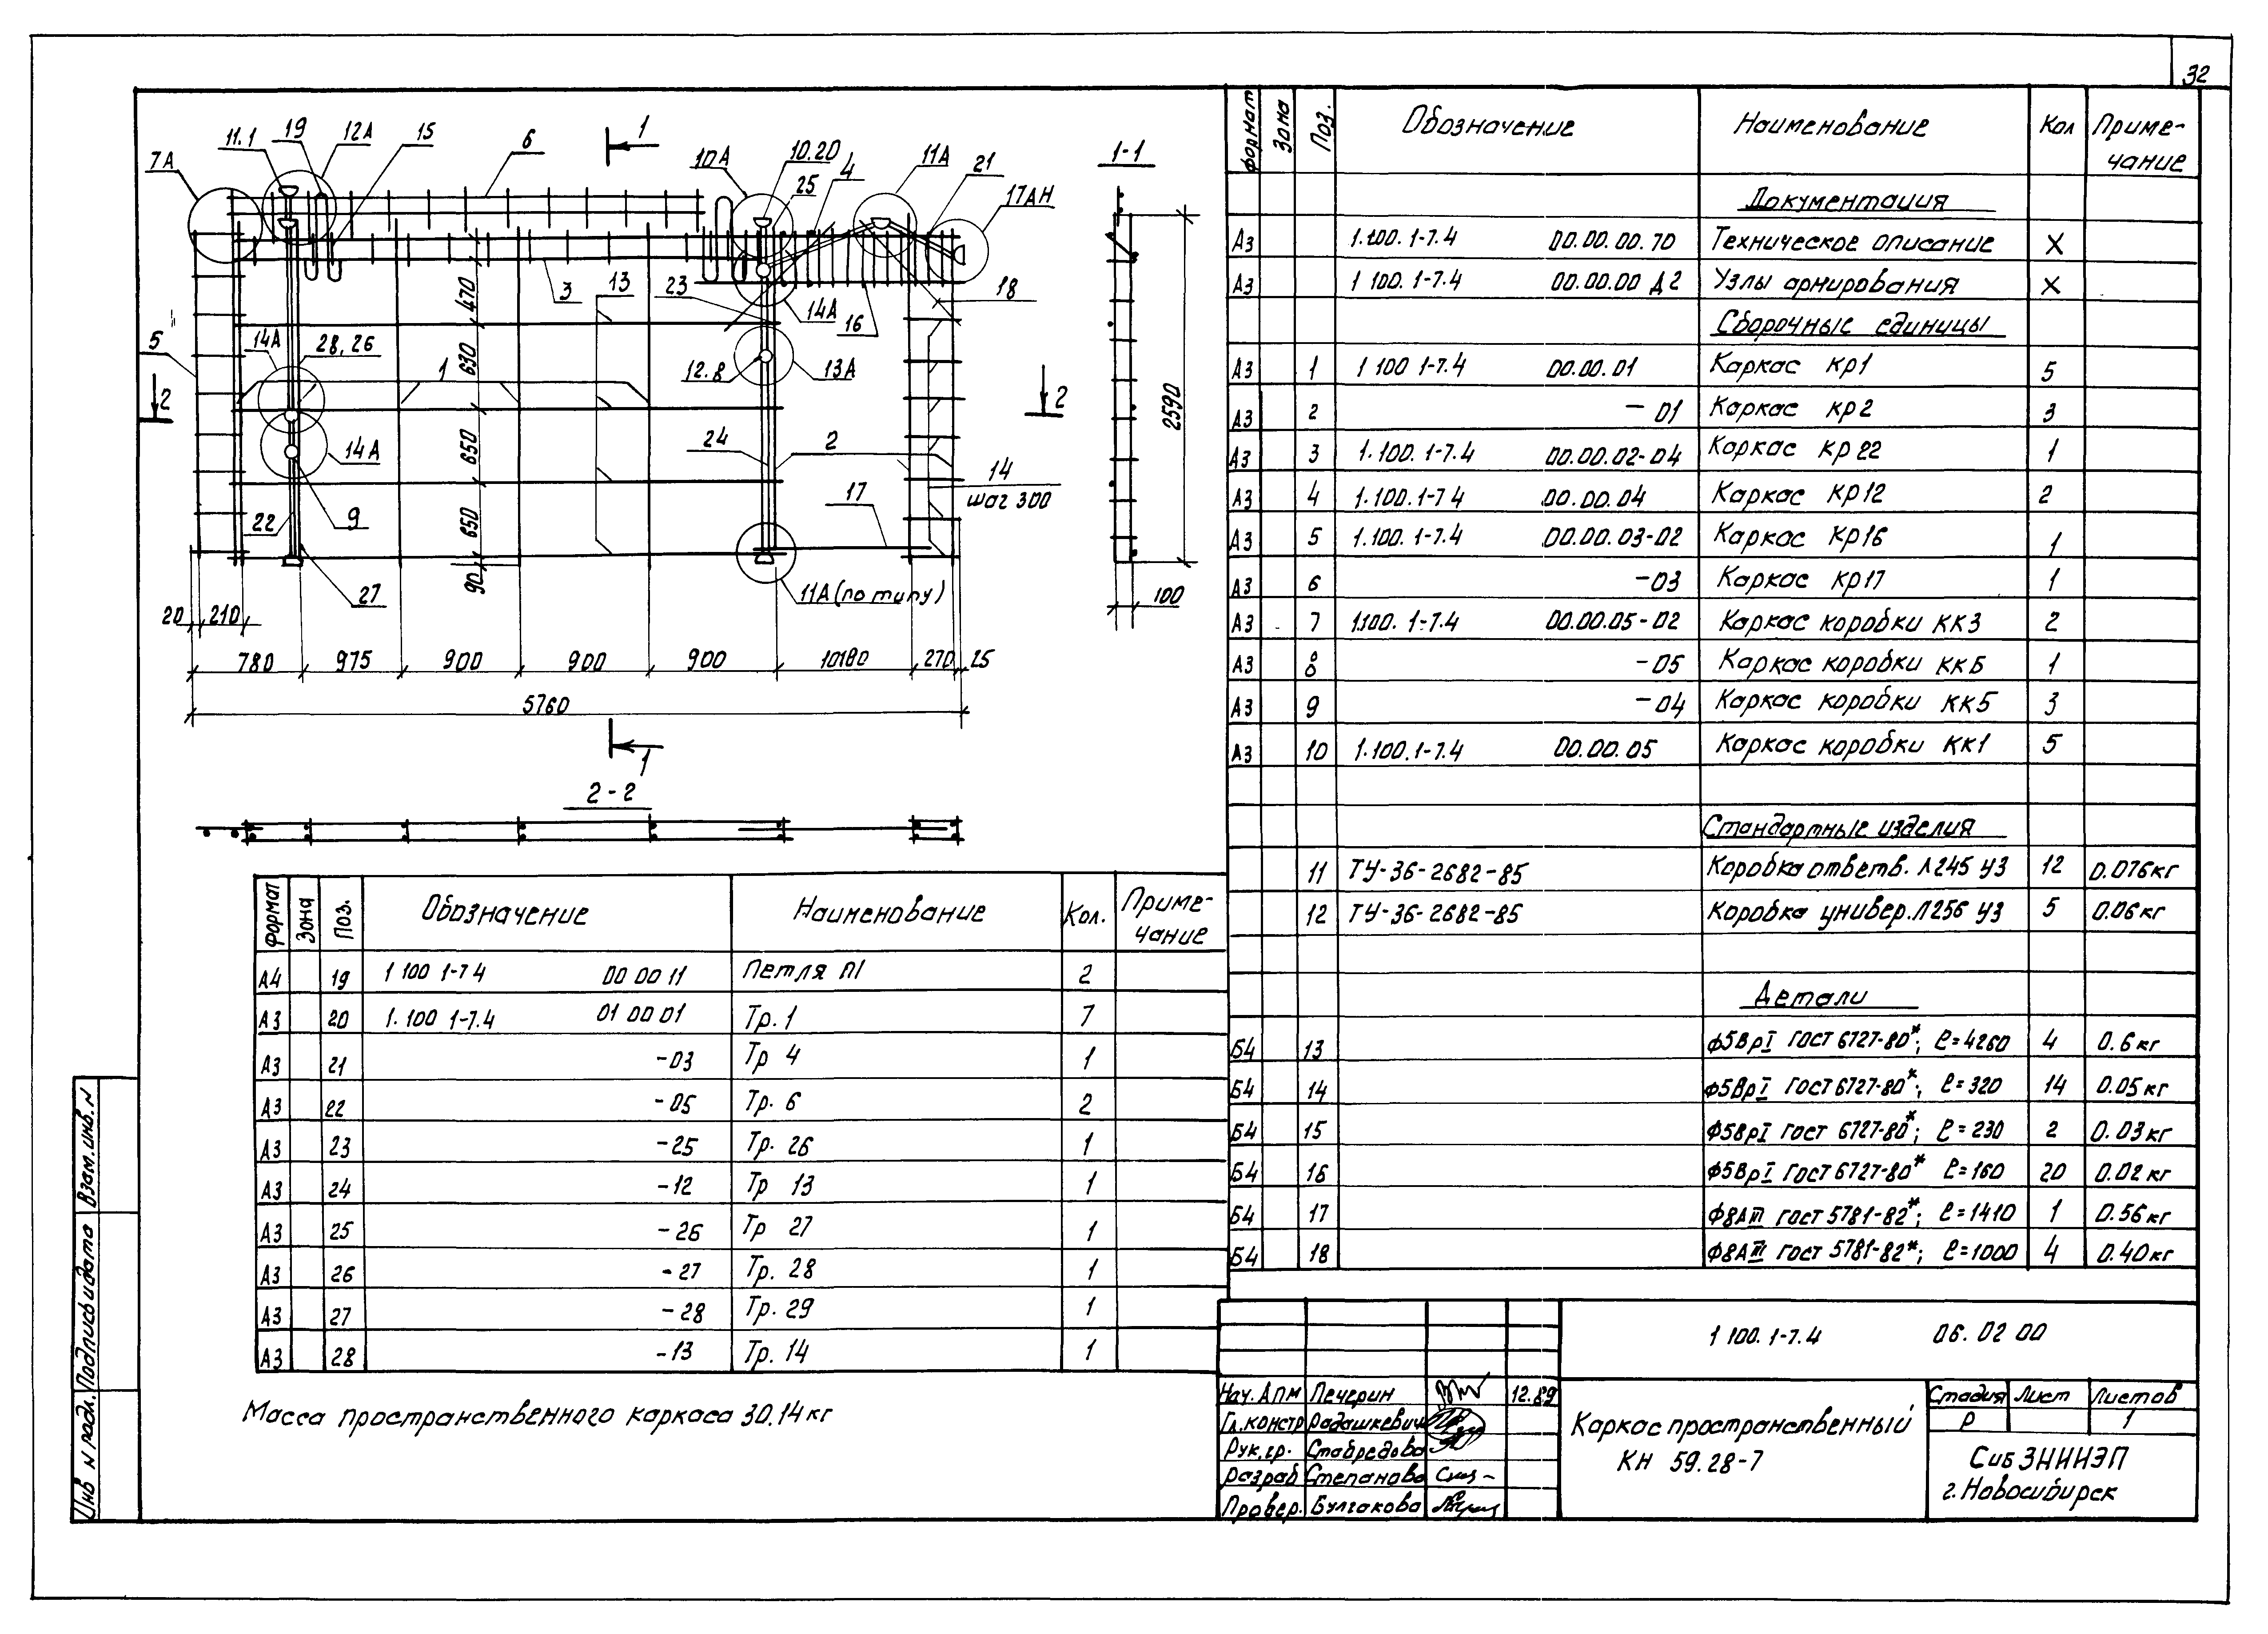 32
7А
11.1
19
12А
15
6
1
10А
10.20
25
4
11А
21
17АН
1-1
470
3
13
23
14А
16
18
5
14А
28, 26
630
1
12.8
13А
2
2
2590
650
24
2
14А
14
шаг 300
22
9
650
17
90
27
11А (по типу)
100
20
210
780
975
900
900
900
10180
270
25
5760
1
2-2
Формат Зона Поз. Обозначение Наименование Кол Приме-
чание
Документация
А3 1.100.1-7.4 00.00.00.ТО Техническое описание X
А3 1 100. 1-7.4 00.00.00 Д2 Узлы армирования X
Сборочные единицы
А3 1 1 100 1-7.4 00.00.01 Каркас кр1 5
А3 2 -01 Каркас кр2 3
А3 3 1.100.1-7.4 00.00.02-04 Каркас кр22 1
А3 4 1.100.1-7 4 00.00.04 Каркас кр12 2
А3 5 1.100.1-7.4 00.00.03-02 Каркас кр16 1
А3 6 -03 Каркас кр17 1
А3 7 1.100.1-7.4 00.00.05-02 Каркас коробки КК3 2
А3 8 -05 Каркас коробки КК6 1
А3 9 -04 Каркас коробки КК5 3
А3 10 1.100.1-7.4 00.00.05 Каркас коробки КК1 5
Стандартные изделия
11 ТУ-36-2682-85 Коробка ответв. Л245 У3 12 0.076кг
12 ТУ-36-2682-85 Коробка универ. Л256 У3 5 0.06кг
Детали
Б4 13 Ф5ВрI ГОСТ 6727-80*; ℓ=4260 4 0.6кг
Б4 14 Ф5ВрI ГОСТ 6727-80*; ℓ=320 14 0.05кг
Б4 15 Ф5ВрI ГОСТ 6727-80*; ℓ=230 2 0.03кг
Б4 16 Ф5ВрI ГОСТ 6727-80* ℓ=160 20 0.02кг
Б4 17 Ф8АIII ГОСТ 5781-82*; ℓ=1410 1 0.56кг
Б4 18 Ф8АIII ГОСТ 5781-82*; ℓ=1000 4 0.40кг
Формат Зона Поз. Обозначение Наименование Кол. Приме-
чание
А4 19 1 100 1-7 4 00 00 11 Петля П1 2
А3 20 1.100 1-7.4 01 00 01 Тр. 1 7
А3 21 -03 Тр 4 1
А3 22 -05 Тр. 6 2
А3 23 -25 Тр. 26 1
А3 24 -12 Тр 13 1
А3 25 -26 Тр 27 1
А3 26 -27 Тр. 28 1
А3 27 -28 Тр. 29 1
А3 28 -13 Тр. 14 1
Масса пространственного каркаса 30.14кг
Инв N подл. Подпись и дата Взам.инв. N
1 100.1-7.4 06.02 00
Нач. АПМ Печерин 12.89
Гл.констр Радашкевич
Рук.гр. Стабредова
Разраб Степанова
Провер. Булгакова
Каркас пространственный
КН 59.28-7
Стадия Лист Листов
Р 1
СибЗНИИЭП
г. Новосибирск